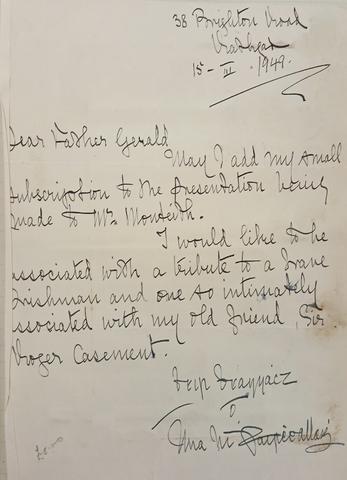 38 Brighton Road
Rathgar
15 – III – 1949.
Dear Father Gerald
May I add my small
subscription to the presentation being
made to Mr Monteith.
I would like to be
associated with a tribute to a brave
Irishman and one so intimately
associated with my old friend, Sir
Roger Casement.
Una Ní